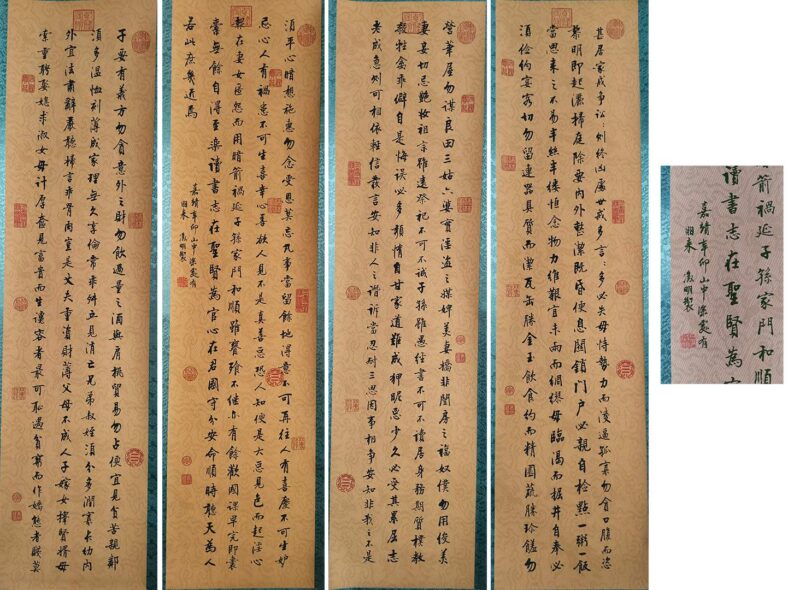 甚居家戒爭訟:則終凶處世戒多言:多必失毋恃勢力而凌逼孤寡勿貪口腹而恣
黎明即起灑掃庭除要內外整潔既昏便息關鎖門戶必親自檢點一粥一飯
當思來之不易半絲半縷恒念物力維艱宜未雨而綢繆毋臨渴而掘井自奉必
須儉約宴客切勿留連器具質而潔瓦缶勝金玉飲食約而精園蔬勝珍饈勿
營華屋勿謀良田三姑六婆實淫盜之媒婢美妾嬌非閨房之福奴僕勿用俊美
妻妾切忌艷妝祖宗雖遠祭祀不可不誠子孫雖愚經書不可不讀居身務期質樸教
殺牲禽乖僻自是悔誤必多頹惰自甘家道難成狎昵惡少久必受其累屈志
老成急則可相依輕信發言安知非人之譖訴當忍耐三思因事相爭安知非我之不是
須平心暗想施惠勿念受恩莫忘凡事當留餘地得意不可再往人有喜慶不可生妒
忌心人有禍患不可生喜幸心善欲人見不是真善惡恐人知便是大惡見色而起淫心
報在妻女匿怨而用暗箭禍延子孫家門和順雖饔飧不繼亦有餘歡國課早完即囊
橐無餘自得至樂讀書志在聖賢為官心在君國守分安命順時聽天為人
若此庶幾近焉
嘉靖辛卯山中深處有
歸來 徵明製
子要有義方勿貪意外之財勿飲過量之酒與肩挑貿易勿占便宜見貧苦親鄰
須多溫恤刻薄成家理無久享倫常乖舛立見消亡兄弟叔姪須分多潤寡長幼內
外宜法肅辭嚴聽婦言乖骨肉豈是丈夫重資財薄父母不成人子嫁女擇賢婿毋
索重聘娶媳求淑女毋計厚奩見富貴而生諂容者最可恥遇貧窮而作驕態者賤莫
箭禍延子孫家門和順
讀書志在聖賢為官
嘉靖辛卯山中深處有
歸來 徵明製